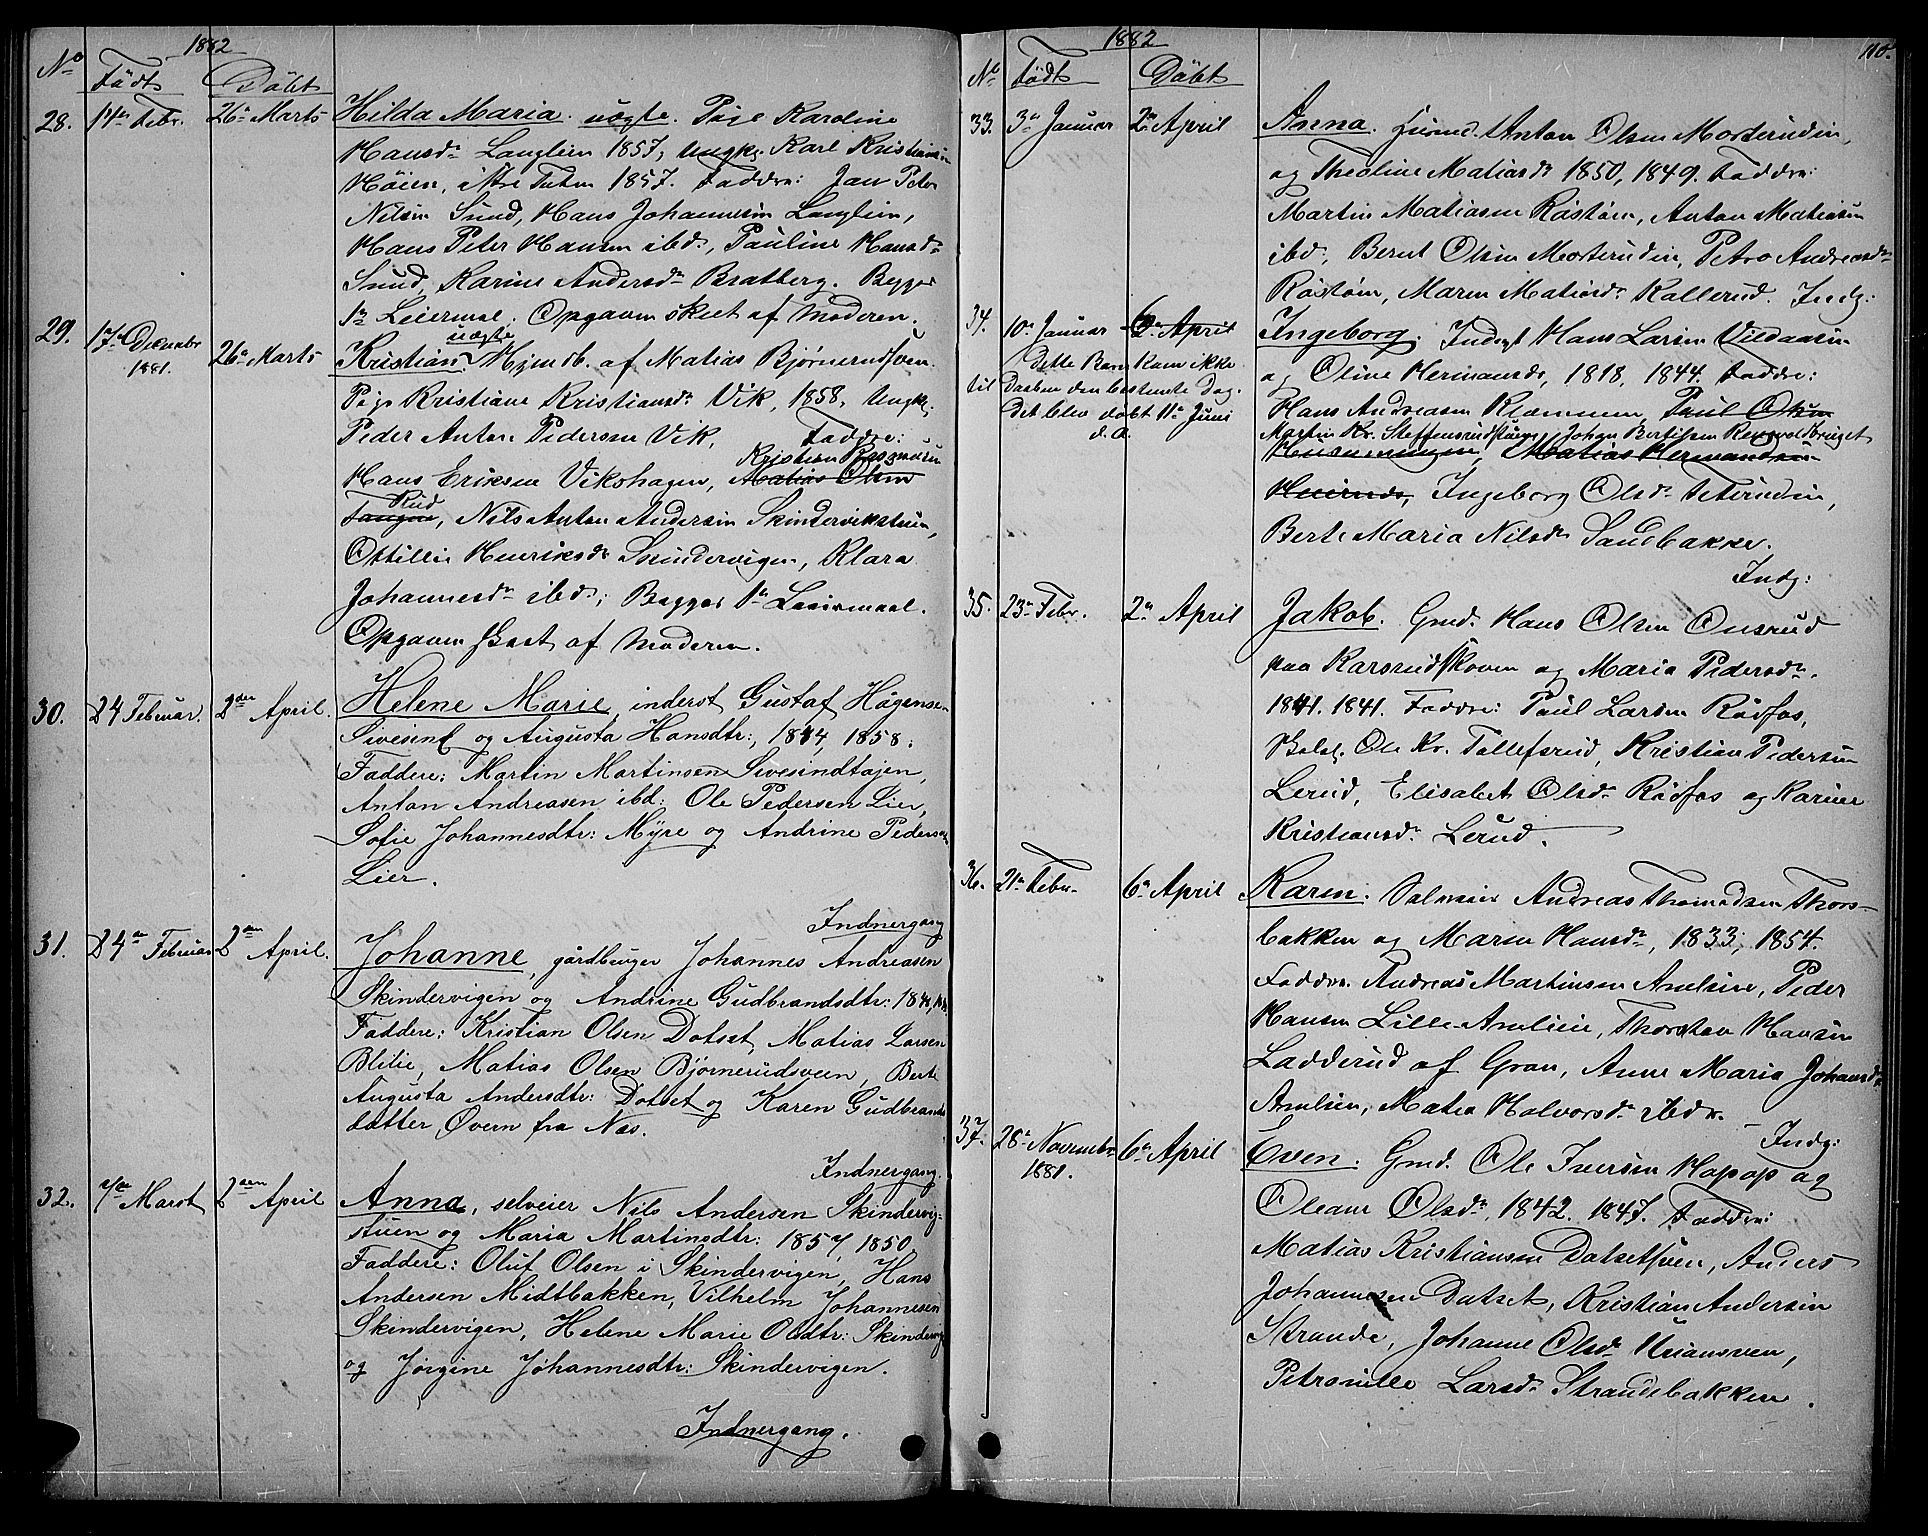 1882
No Födt Döbt
28. 14de Febr. 26de Marts Hilda Maria. uægte. Pige Karoline
Hansdr Langlien 1857, Ungk. Karl Kristiansen
Höien, Østre Toten 1857. Faddre: Jan Peter
Nilsen Sund, Hans Johannesen Langlien,
Hans Peter Hansen ibd., Pauline Hansdr
Sund, Karine Andersdr Bratberg. Begges
1ste Leiermaal. Opgaven skeet af Moderen.
29. 17de Decembr 1881. 26de Marts Kristian uægte Hjemdb. af Matias Bjørnerudsven.
Pige Kristiane Kristiansdr Vik, 1858, Ungk.
Peder Anton Pedersen Vik, Faddre:
Kristian Rasmusen
Hans Eriksen Vikshagen, Matias Olsen
Rud
Tangen, Nils Anton Andersen Skindervikstuen,
Ottilie Henriksdr Skindervigen, Klara
Johannesdr ibd.; Begges 1ste Leiermaal.
Opgaven skeet af Moderen.
30. 24 Febuar. 2den April. Helene Marie, inderst Gustaf Hågensen
Sivesind og Augusta Hansdtr:, 1844, 1858.
Faddere: Martin Martinsen Sivesindtajen,
Anton Andreasen ibd: Ole Pedersen Lier,
Sofie Johannesdtr: Myre og Andrine Peders
Lier.
Indnergang
31. 24de Febuar 2den April. Johanne, gårdbruger Johannes Andreasen
Skindervigen og Andrine Gudbrandsdtr: 
Faddere: Kristian Olsen Dotset, Matias Larsen
Blilie, Matias Olsen Bjørnerudsveen, Berte
Augusta Andersdtr: Dotset og Karen Gudbrands
datter, Øvern fra Nes.
Indnergang.
32. 7de Marst 2den April Anna, selveier Nils Andersen Skindervig-
stuen og Maria Martinsdtr: 1857, 1850,
Faddere: Oluf Olsen i Skindervigen, Hans
Andersen Midtbakken, Vilhelm Johannesen
Skindervigen, Helene Marie Olsdtr: Skindervig
og Jørgine Johannesdtr: Skindervigen.
Indnergang.
1882 110.
No Födt Döbt
33. 3de Januar 2den April Anna. Husmd. Anton Olsen Mosterudin,
og Theoline Matiasdr 1850, 1849. Faddre:
Martin Matiasen Röstöen, Anton Matiasen
ibd., Bernt Olsen Mosterudin, Petro Andreasdr
Röstöen, Maren Matiasdr Kallerud. Indg:
34. 10de Januar 6de April Ingeborg. Inderst Hans Larsen Vildaasen
Dette Barn kom ikke
til Daaben den bestemte Dag.
det blev döbt 11te Juni
d. A.
og Oline Hermansdr, 1818, 1844. Faddre:
Hans Andreasen Klommen, Paul Olsen
Martin Kr. Steffensrudstuen, Johan Bertilsen Rengvoldbruget
Matias Hermandsen
Ingeborg Olsdr Seterudin,
Berte Maria Nilsdr Sandbakke.
Indg:
35. 23de Febr. 2den April Jakob. Gmd. Hans Olsen Onsrud
paa Karsrudskoven og Maria Pedersdr.
1841. 1841. Faddre: Paul Larsen Rödfos,
Ole Kr. Tollefsrud, Kristian Pedersen
Lerud, Elisabet Olsdr Rödfos og Karine
Kristiansdr Lerud.
36. 21de Febr. 6te April Karen. Selveier Andreas Thomadsen Thors-
bakken og Maren Hansdr, 1833, 1854.
Faddre. Andreas Martinsen Amlien, Peder
Hansen Lille Amlien, Thorsten Hansen
Ladderud af Gran, Anne Maria Johansdr
Amlien, Matea Halvorsdr ibdm.
Indg:
37. 28de Novembr 1881. 6te April Even. Gmd. Ole Iversen Hopop og
Oleane Olsdr, 1842. 1847. Faddre:
Matias Kristiansen Datsetsven, Anders
Johannesen Datset, Kristian Andersen
Strande, Johanne Olsdr
Petronille Larsdr Strandebakken.